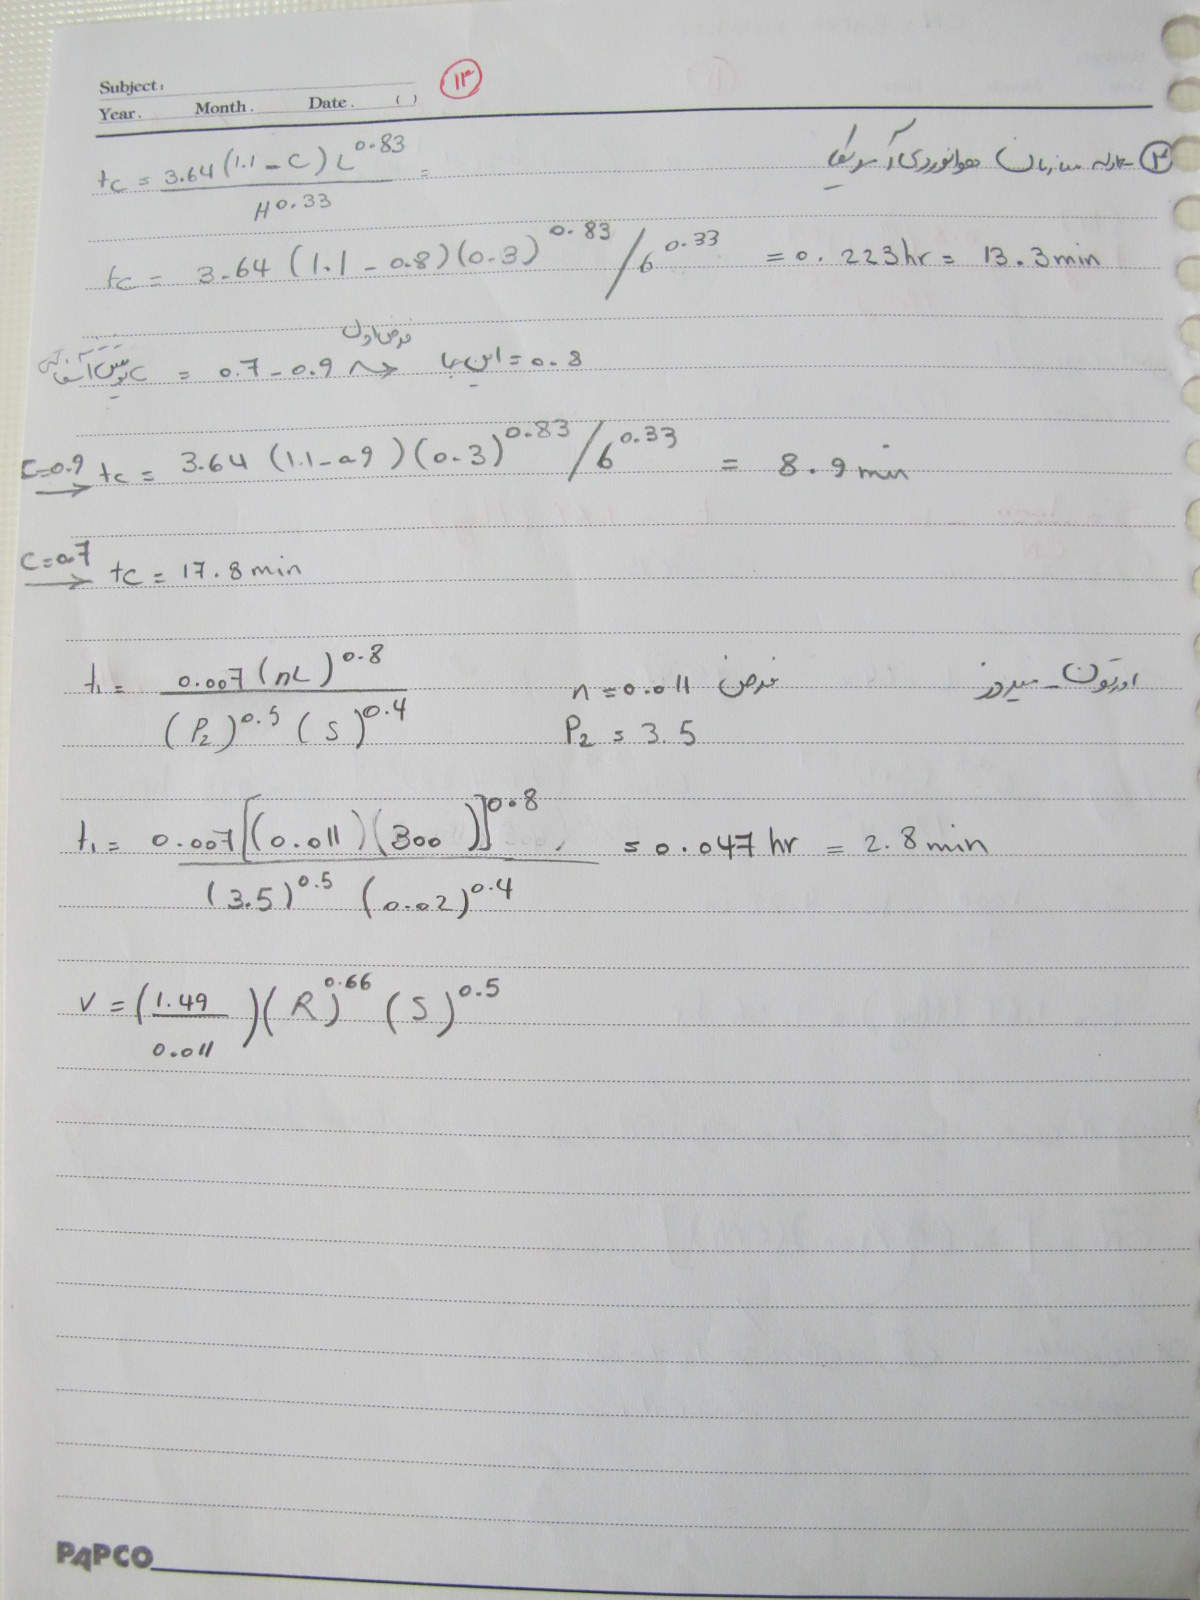 Subject:
Year. Month. Date. ( )
۱۳
۳ معادله سازمان هوانوردی آمریکا
tc = 3.64 (1.1 - C) L^0.83 / H^0.33 =
tc = 3.64 (1.1 - 0.8)(0.3)^0.83 / 6^0.33 = 0.223hr = 13.3min
فرض اول
C = 0.7 - 0.9 ⇝ این جا = 0.8
C=0.9 → tc = 3.64 (1.1-0.9)(0.3)^0.83 / 6^0.33 = 8.9min
C=0.7 → tc = 17.8min
اورتون - میدوز
t1 = 0.007 (nL)^0.8 / (P2)^0.5 (S)^0.4 n = 0.011 فرض
P2 = 3.5
t1 = 0.007[(0.011)(300)]^0.8 / (3.5)^0.5 (0.02)^0.4 = 0.047hr = 2.8min
V = (1.49 / 0.011)(R)^0.66 (S)^0.5
PAPCO